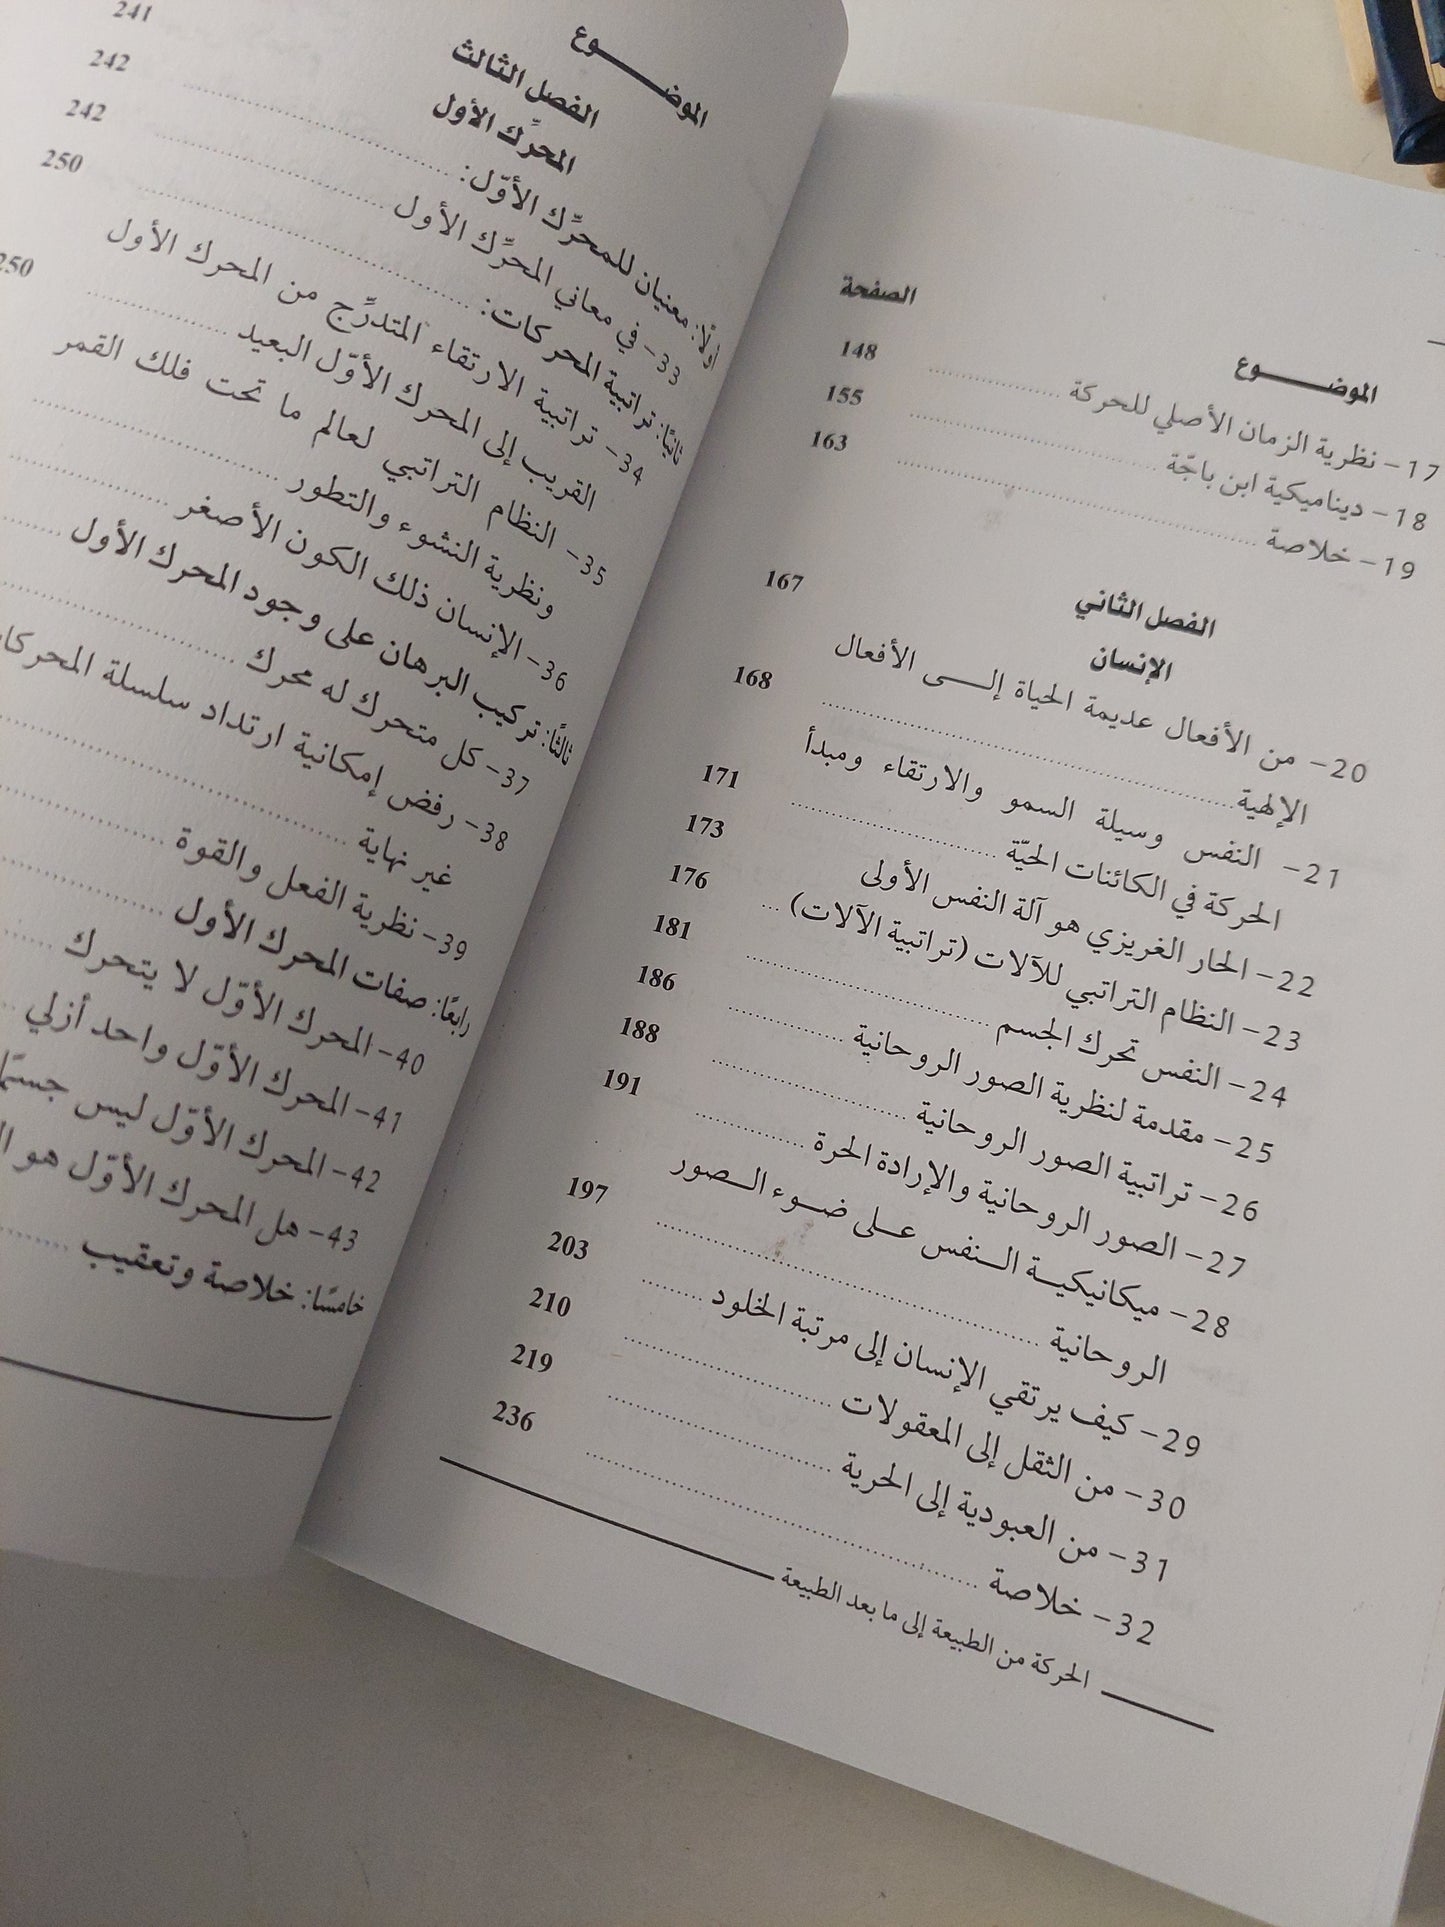 الموضـــوع
الصفحة
17- نظرية الزمان الأصلي للحركة ........ 148
18- ديناميكية ابن باجّة ........ 155
19- خلاصة ........ 163
الفصل الثاني
الإنسان
167
20- من الأفعال عديمة الحياة إلـــى الأفعال
الإلهية ........ 168
21- النفس وسيلة السمو والارتقاء ومبدأ
الحركة في الكائنات الحيّة ........ 171
22- الحار الغريزي هو آلة النفس الأولى 173
23- النظام التراتبي للآلات (تراتبية الآلات) ... 176
24- النفس تحرك الجسم ........ 181
25- مقدمة لنظرية الصور الروحانية ........ 186
26- تراتبية الصور الروحانية ........ 188
27- الصور الروحانية والإرادة الحرة ........ 191
28- ميكانيكيـــة الــنفس علـــى ضـــوء الــصور
الروحانية ........ 197
29- كيف يرتقي الإنسان إلى مرتبة الخلود ........ 203
30- من الثقل إلى المعقولات ........ 210
31- من العبودية إلى الحرية ........ 219
32- خلاصة ........ 236
الحركة من الطبيعة إلى ما بعد الطبيعة
الموضـــوع
الفصل الثالث
المحرِّك الأول
241
أولًا: معنيان للمحرِّك الأوّل: ........ 242
33- في معاني المحرِّك الأول ........ 242
ثانيًا: تراتبية المحركات: ........ 250
34- تراتبية الارتقاء المتدرِّج من المحرك الأول
القريب إلى المحرك الأوّل البعيد ........ 250
35- النظام التراتبي لعالم ما تحت فلك القمر
ونظرية النشوء والتطور ........
36- الإنسان ذلك الكون الأصغر ........
ثالثًا: تركيب البرهان على وجود المحرك الأول ........
37- كل متحرك له محرك ........
38- رفض إمكانية ارتداد سلسلة
غير نهاية ........
39- نظرية الفعل والقوة ........
رابعًا: صفات المحرك الأول ........
40- المحرك الأوّل لا يتحرك ........
41- المحرك الأوّل واحد أزلي
42- المحرك الأوّل ليس جسمًا
43- هل المحرك الأوّل هو
خامسًا: خلاصة وتعقيب ........